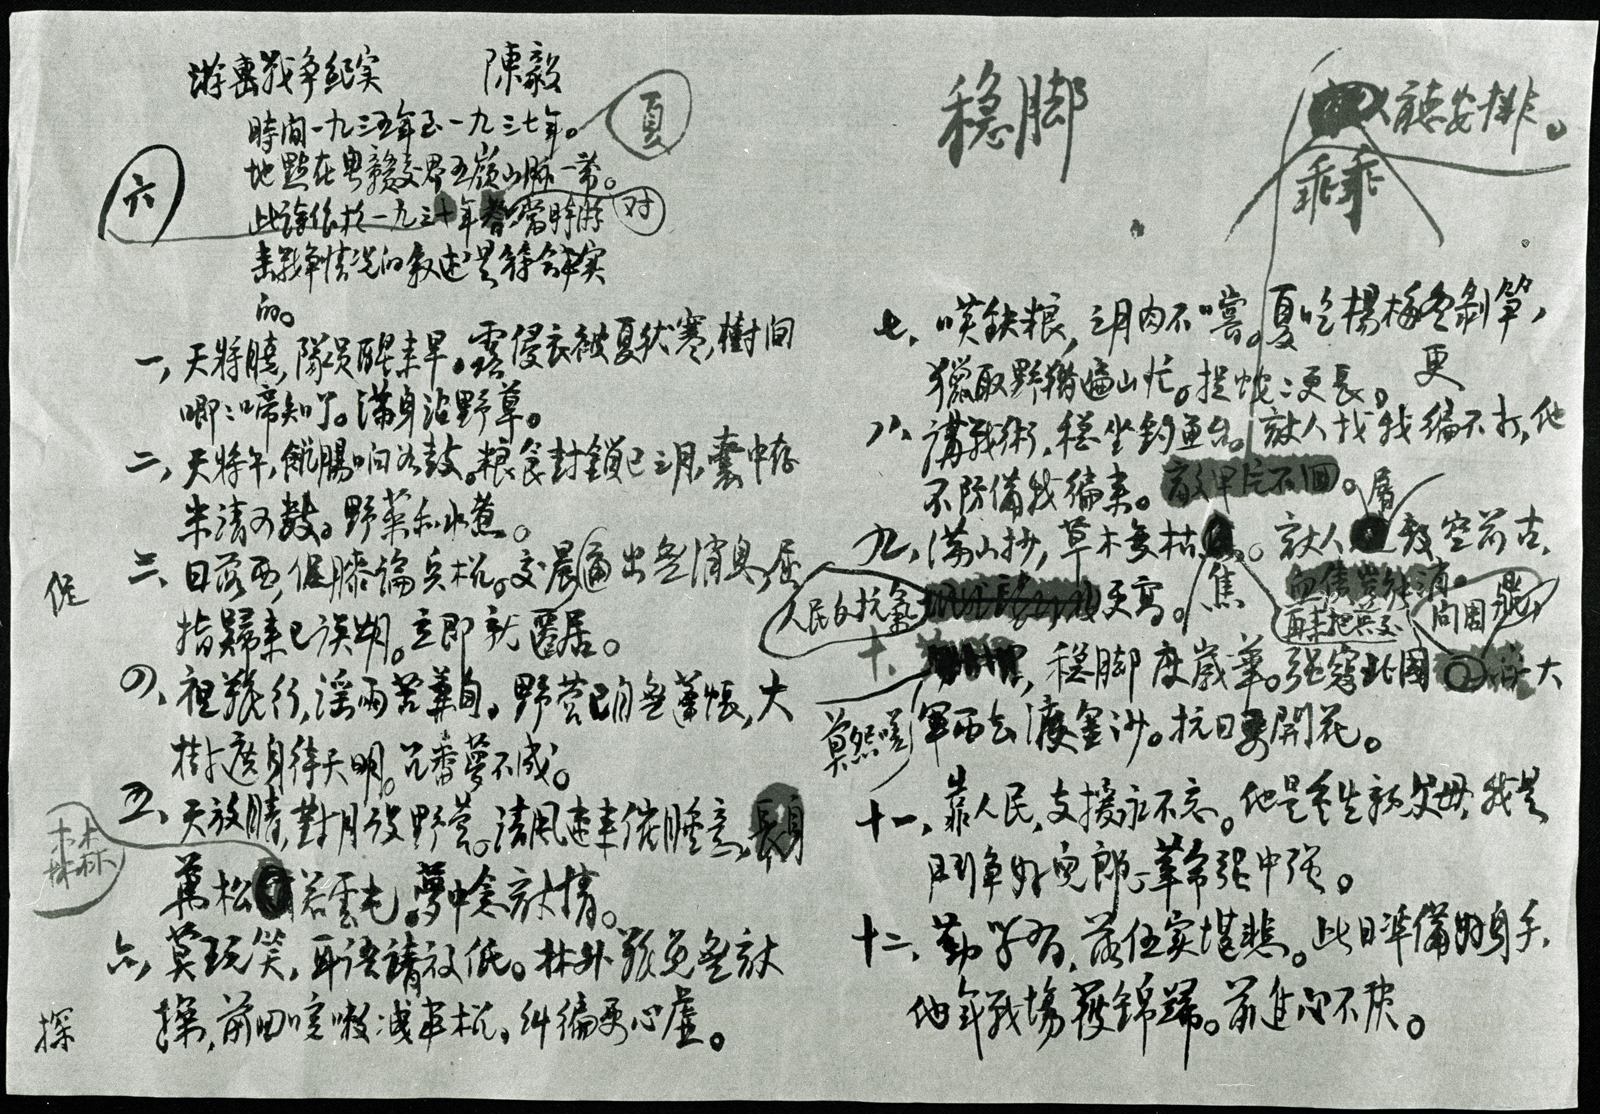 游击战争纪实 陳毅
時间一九三五年至一九三七年。
夏
地點在粤赣交界五嶺山脈一带。
六
此詩作於一九三十年春當時游
对
击戰争情況的叙述是符合事实
的。
一,天將曉,隊员醒来早。露侵衣被夏犹寒,樹间
唧〻啼知了。满身沾野草。
二,天将午,飢腸响如鼓。粮食封鎖已三月,囊中存
米清可数。野菜和水煮。
三,日落西,促膝論兵机。交晨出無消息,屈
促
指歸来已误期。立即就匿居。
四,祖夜行,淫雨苦兼旬。野营已自無蓬帳,大
樹遮身待天明。几番夢不成。
五,天放晴,對月設野营。清風速来催睡意,森
萬松若雲屯。夢中念敌情。
森森
六,莫玩笑,耳语請放低。林外难免無敌
探,前回咳嗽洩軍机。纠偏要心虚。
探
稳脚
人請安排。
乖乖
七,嘆缺粮,三月肉不嚐。夏吃楊梅冬剥笋,
獵取野猪遍山忙。捉蛇〻更長。
更
八,講战術,稳坐釣魚台。敌人找我偏不打,他
不防備我偏来。敌甲片不回。
九,满山抄,草木变枯焦。敌人屠殺空前古,
人民的抗氣更高。焦
再来把兵交
十,稳脚度歲華。强寇北國問困鼎,大
莫然嘆
軍西去渡金沙。抗日要開花。
十一,靠人民,支援永不忘。他是重生新父母,我是
鬥争好兒郎。革命强中强。
十二,勤学習,落伍实堪悲。此日準備好身手,
他年戰場獲錦歸。前進心不灰。